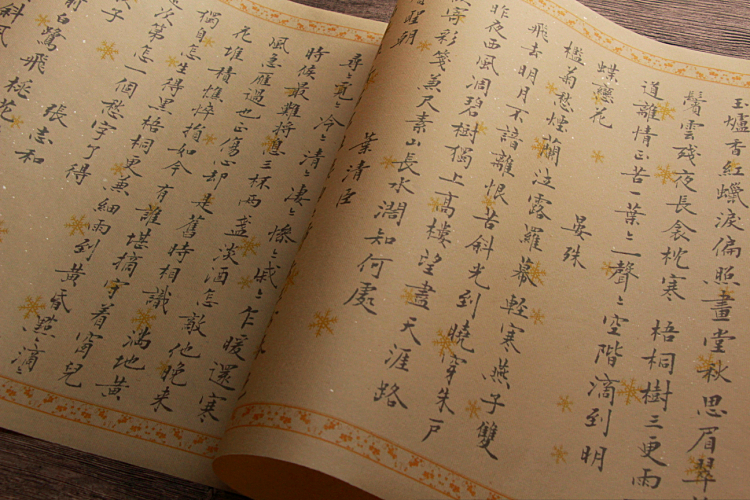 玉爐香紅蠟淚偏照畫堂秋思眉翠
鬢雲殘夜長衾枕寒 梧桐樹三更雨
道離情正苦一葉〻一聲〻空階滴到明
蝶戀花 晏殊
檻菊愁煙蘭泣露羅幕輕寒燕子雙
飛去明月不諳離恨苦斜光到曉穿朱戶
昨夜西風凋碧樹獨上高樓望盡天涯路
寄彩箋兼尺素山長水闊知何處
朝 葉清臣
尋〻覓〻冷〻清〻淒〻慘〻戚〻乍暖還寒
時候最難將息三杯兩盞淡酒怎敵他晚來
風急雁過也正傷心卻是舊時相識 滿地黃
花堆積憔悴損如今有誰堪摘守着窗兒
獨自怎生得黑梧桐更兼細雨到黃昏點〻滴〻
次第怎一個愁字了得
子 張志和
前白鷺飛桃花
斜風